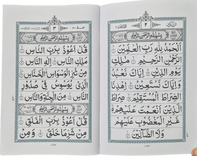 ٢
بِسْمِ اللَّهِ الرَّحْمَٰنِ الرَّحِيمِ
اَلْحَمْدُ لِلّٰهِ رَبِّ الْعٰلَمِيْنَ
الرَّحْمٰنِ الرَّحِيْمِ مٰلِكِ
يَوْمِ الدِّيْنِ اِيَّاكَ نَعْبُدُ
وَاِيَّاكَ نَسْتَعِيْنُ اِهْدِنَا
الصِّرَاطَ الْمُسْتَقِيْمَ صِرَاطَ
الَّذِيْنَ اَنْعَمْتَ عَلَيْهِمْ
غَيْرِ الْمَغْضُوْبِ عَلَيْهِمْ
وَلَا الضَّآلِّيْنَ
٣
بِسْمِ اللَّهِ الرَّحْمَٰنِ الرَّحِيمِ
قُلْ اَعُوْذُ بِرَبِّ النَّاسِ
مَلِكِ النَّاسِ اِلٰهِ النَّاسِ
مِنْ شَرِّ الْوَسْوَاسِ الْخَنَّاسِ
الَّذِيْ يُوَسْوِسُ فِيْ صُدُوْرِ
النَّاسِ مِنَ الْجِنَّةِ وَالنَّاسِ
قُلْ اَعُوْذُ بِرَبِّ الْفَلَقِ
مِنْ شَرِّ مَا خَلَقَ وَمِنْ